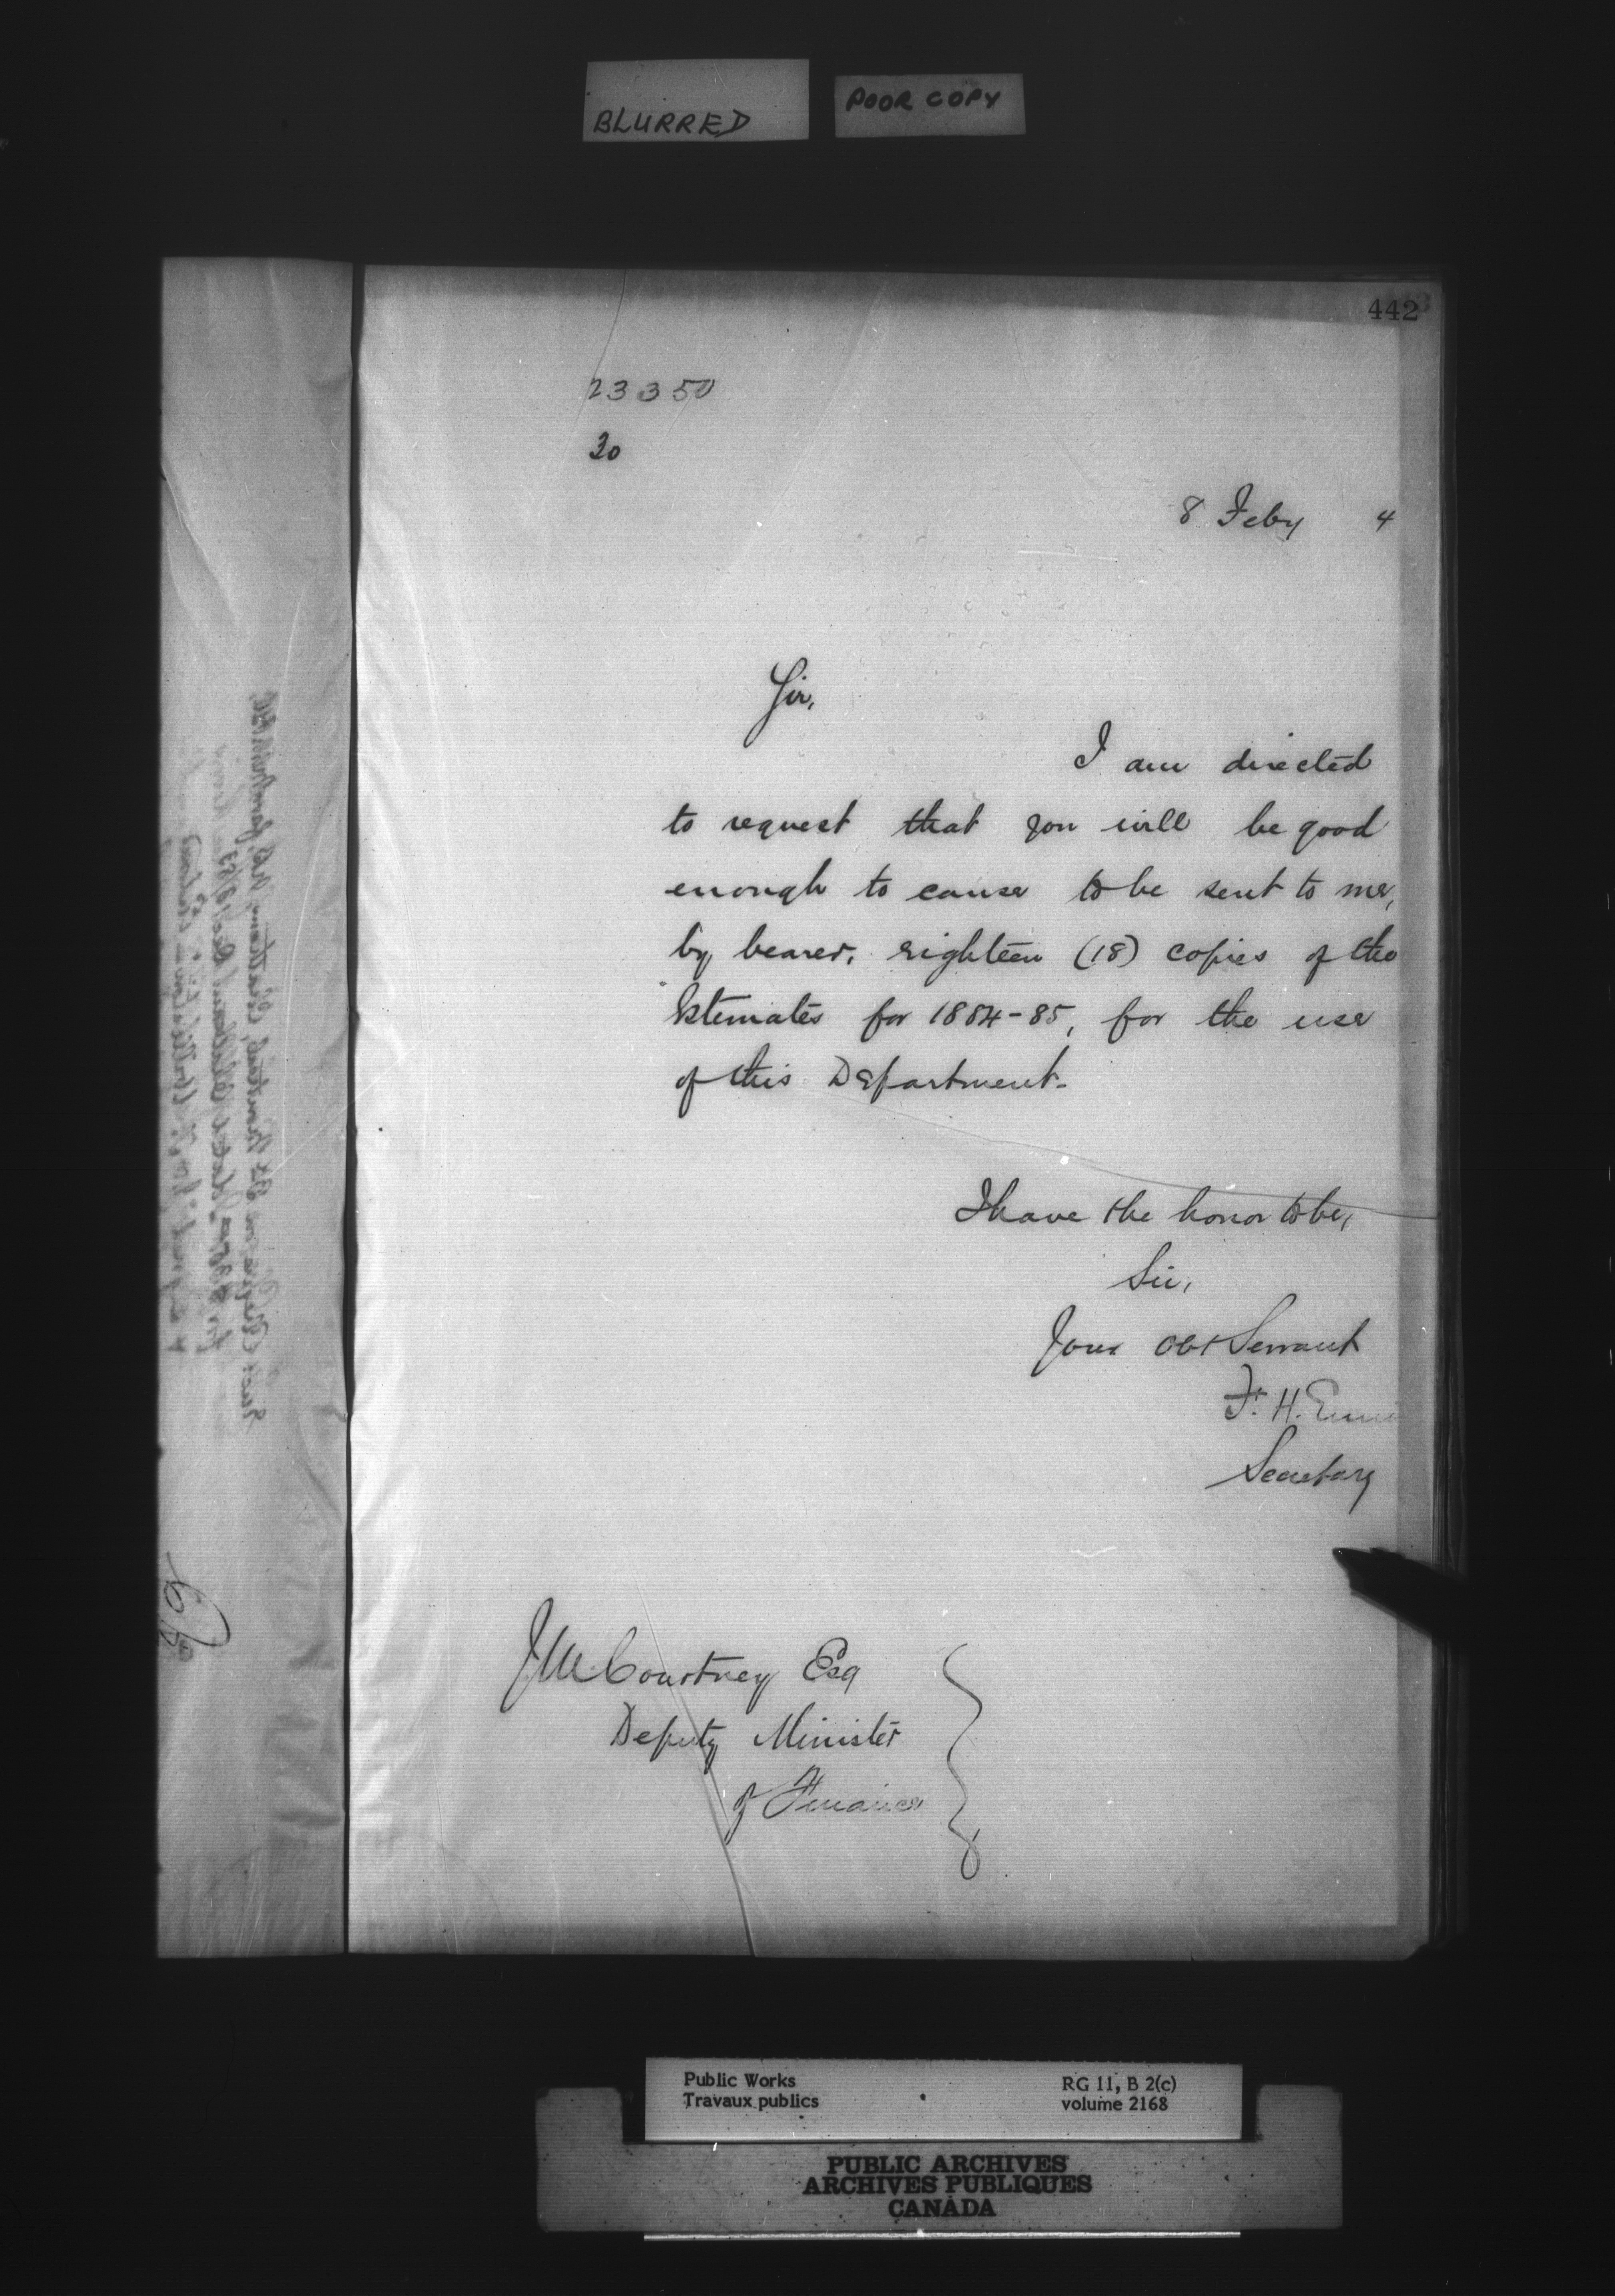 BLURRED
POOR COPY
442
23350
30
8 Feby 4
Sir,
I am directed
to request that you will be good
enough to cause to be sent to me,
by bearer, eighteen (18) copies of the
Estimates for 1884-85, for the use
of this Department.
I have the honor to be,
Sir,
Your Obt Servant
F. H. Ennis
Secretary
J M Courtney Esq
Deputy Minister
of Finance
Public Works
Travaux publics
RG 11, B 2(c)
volume 2168
PUBLIC ARCHIVES
ARCHIVES PUBLIQUES
CANADA